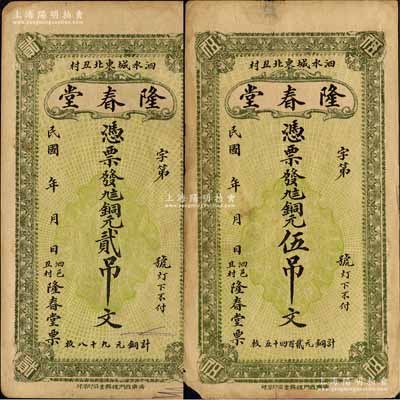 上海陽明拍賣
泗水城東北丑村
隆春堂
字第
號灯下不付
憑票發九七銅元貳吊文
民國 年 月 日
泗邑丑村隆春堂票
計銅元九十八枚
泗水城東北丑村
隆春堂
字第
號灯下不付
憑票發九七銅元伍吊文
民國 年 月 日
泗邑丑村隆春堂票
計銅元貳百四十五枚
上海陽明拍賣